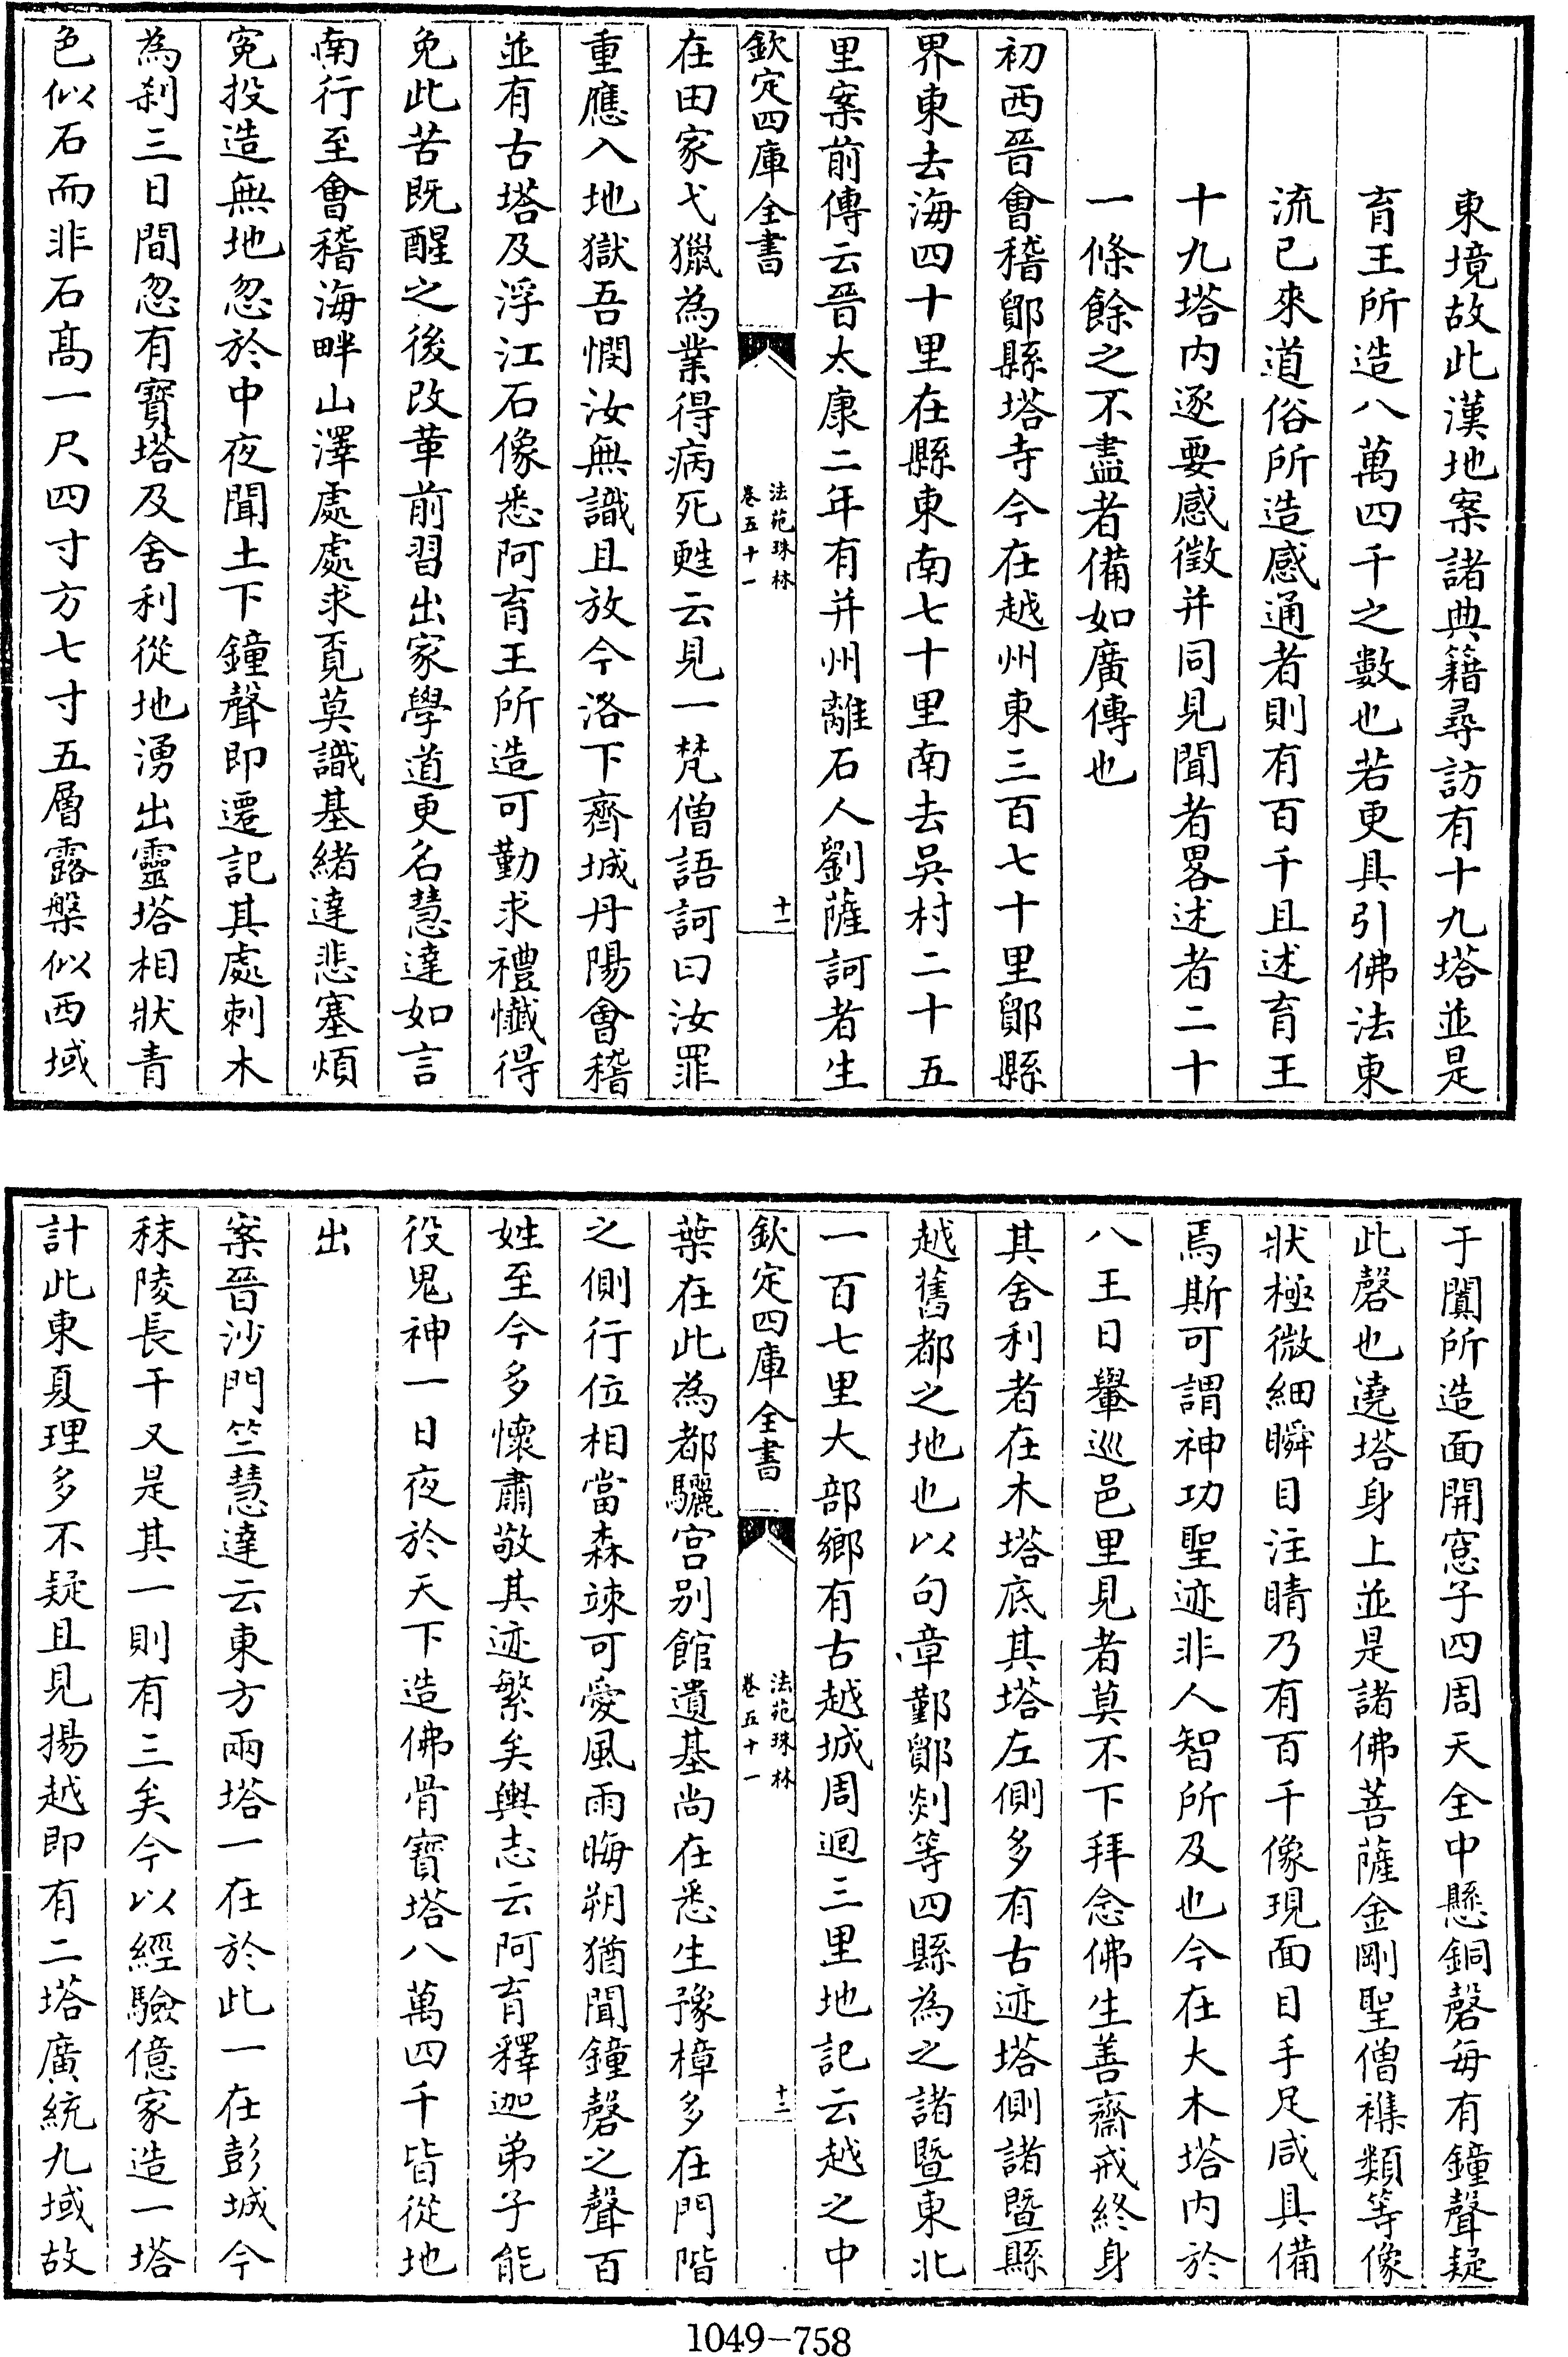 東境故此漢地案諸典籍尋訪有十九塔並是
育王所造八萬四千之數也若更具引佛法東
流已來道俗所造感通者則有百千且述育王
十九塔內逐要感徵并同見聞者畧述者二十
一條餘之不盡者備如廣傳也
初西晉會稽鄮縣塔寺今在越州東三百七十里鄮縣
界東去海四十里在縣東南七十里南去吳村二十五
里案前傳云晉太康二年有并州離石人劉薩訶者生
欽定四庫全書
法苑珠林
卷五十一
十一
在田家弋獵為業得病死甦云見一梵僧語訶曰汝罪
重應入地獄吾憫汝無識且放今洛下齊城丹陽會稽
並有古塔及浮江石像悉阿育王所造可勤求禮懺得
免此苦既醒之後改革前習出家學道更名慧達如言
南行至會稽海畔山澤處處求覔莫識基緒達悲塞煩
寃投造無地忽於中夜聞土下鐘聲即遷記其處刺木
為刹三日間忽有寶塔及舍利從地湧出靈塔相狀青
色似石而非石髙一尺四寸方七寸五層露槃似西域
于闐所造面開窓子四周天全中懸銅磬每有鐘聲疑
此磬也遶塔身上並是諸佛菩薩金剛聖僧襍類等像
狀極微細瞬目注睛乃有百千像現面目手足咸具備
焉斯可謂神功聖迹非人智所及也今在大木塔内於
八王日轝巡邑里見者莫不下拜念佛生善齋戒終身
其舍利者在木塔底其塔左側多有古迹塔側諸暨縣
越舊都之地也以句章鄞鄮剡等四縣為之諸暨東北
一百七里大部鄉有古越城周迴三里地記云越之中
欽定四庫全書
法苑珠林
卷五十一
十二
葉在此為都驪宮别館遺基尚在悉生豫樟多在門階
之側行位相當森竦可愛風雨晦朔猶聞鐘磬之聲百
姓至今多懷肅敬其迹繁矣輿志云阿育釋迦弟子能
役鬼神一日夜於天下造佛骨寶塔八萬四千皆從地
出
案晉沙門竺慧達云東方兩塔一在於此一在彭城今
秣陵長干又是其一則有三矣今以經驗億家造一塔
計此東夏理多不疑且見揚越即有二塔廣統九域故
1049-758